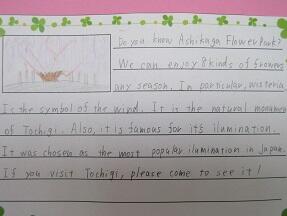 Do you know Ashikaga Flower Park?
We can enjoy 8 kinds of flowers
any season. In particular, wisteria
Is the symbol of the wind. It is the natural monumen
of Tochigi. Also, it is famous for it's ilumination.
It was chosen as the most popular ilumination in Japan.
If you visit Tochigi, please come to see it!